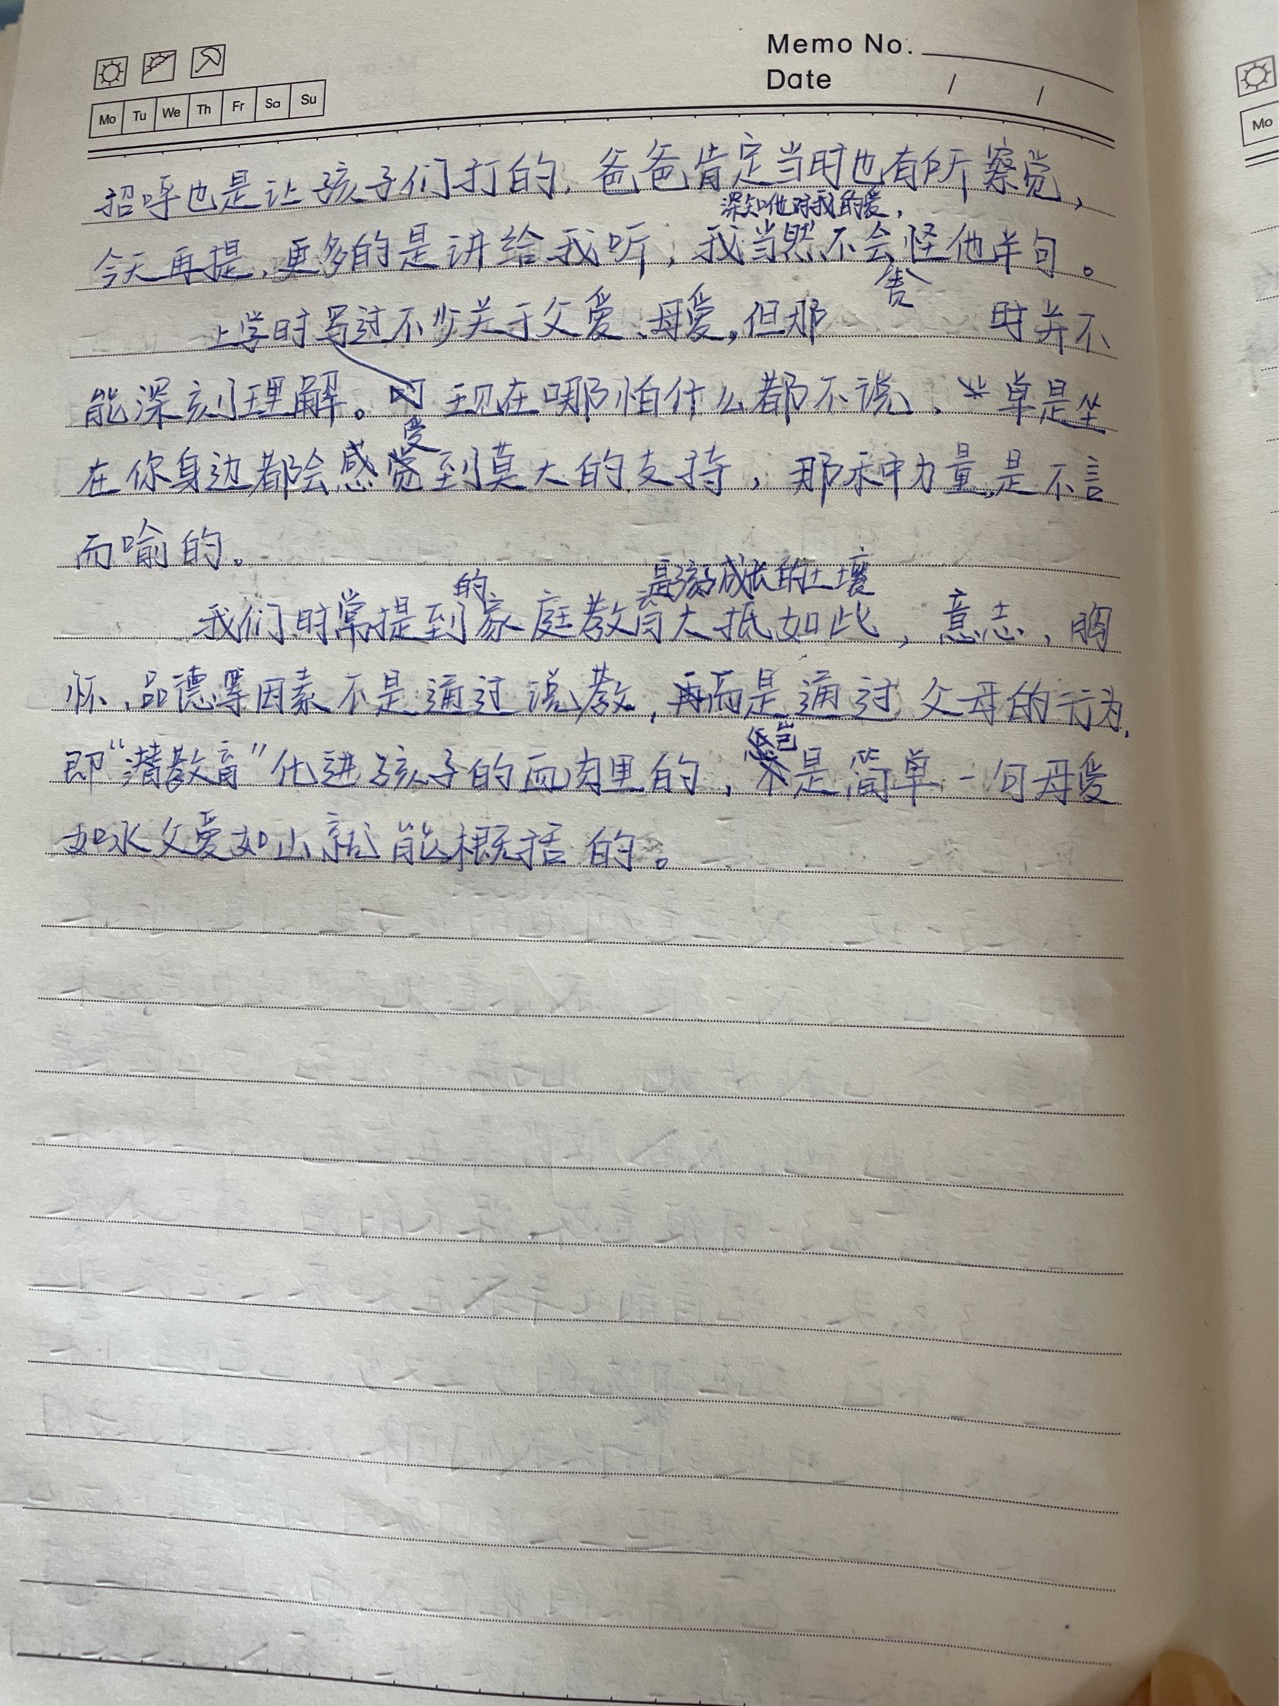 Memo No.
Date / /
Mo Tu We Th Fr Sa Su
Mo
招呼也是让孩子们打的，爸爸肯定当时也有所察觉，
深知他对我的爱，
今天再提，更多的是讲给我听，我当然不会怪他半句。
舍
上学时写过不少关于父爱、母爱，但那时并不
能深刻理解。 现在哪怕什么都不说、单是坐
受
在你身边都会感觉到莫大的支持，那种力量是不言
而喻的。
的 是孩子成长的土壤
我们时常提到家庭教育大抵如此，意志、胸
怀、品德等因素不是通过说教，而是通过父母的行为，
岂
即“潜教育”化进孩子的血肉里的，不是简单一句母爱
如水父爱如山就能概括的。